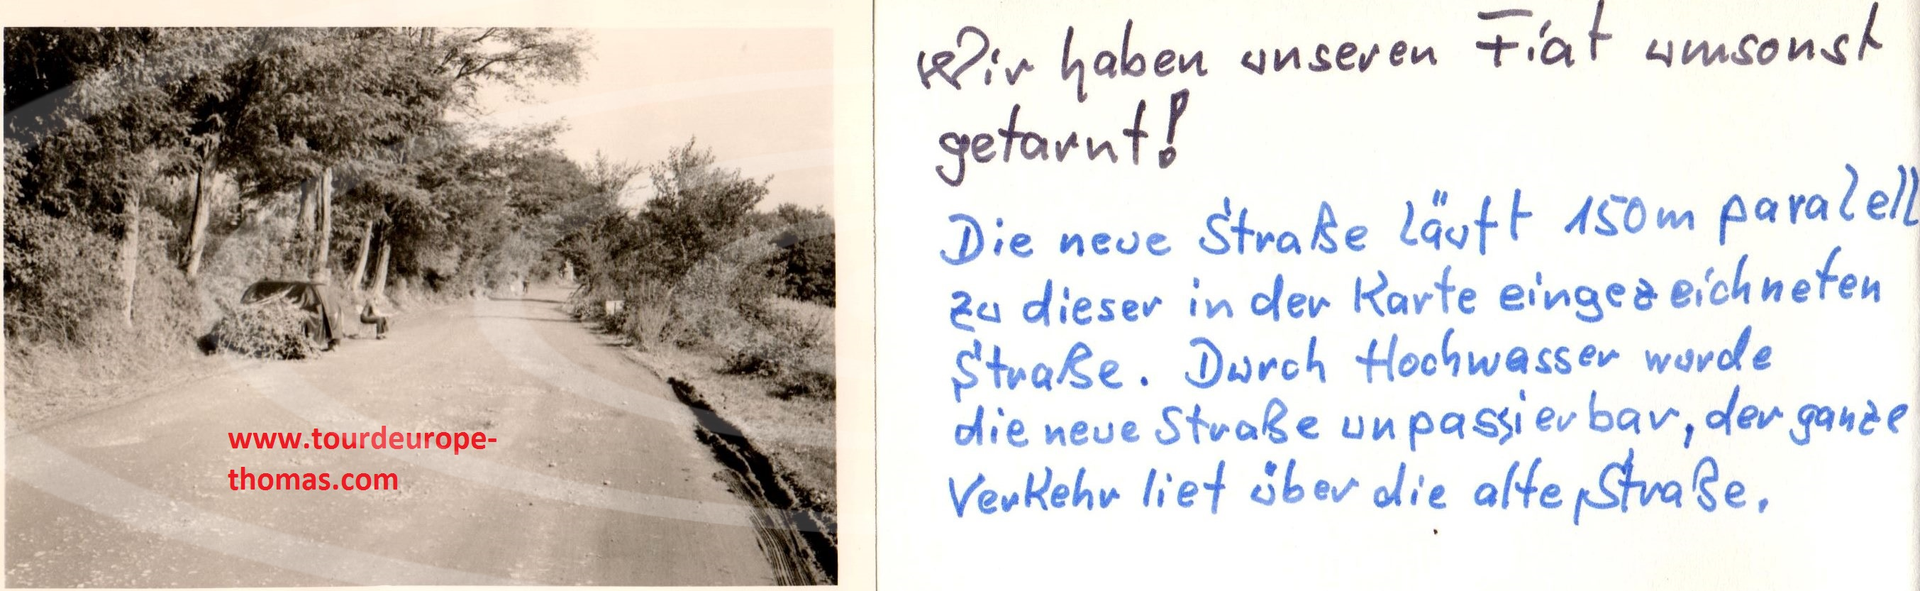 www.tourdeurope-
thomas.com
Wir haben unseren Fiat umsonst
getarnt!
Die neue Straße läuft 150m paralell
zu dieser in der Karte eingezeichneten
Straße. Durch Hochwasser wurde
die neue Straße unpassierbar, der ganze
Verkehr lief über die alte Straße.